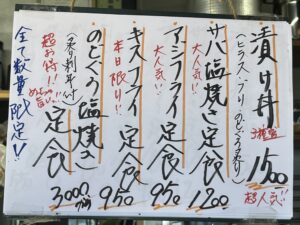 漬け丼 3種盛 1500
(ヒラス・ブリ・のどぐろ炙り) 超人気!!
サバ塩焼き定食 1200
大人気!!
アジフライ定食 950
大人気!!
キスフライ定食 950
本日限り!!
のどぐろ塩焼き定食 3000
(炙り刺身付)
超お得!!
めちゃ旨い!!
全て数量限定!!